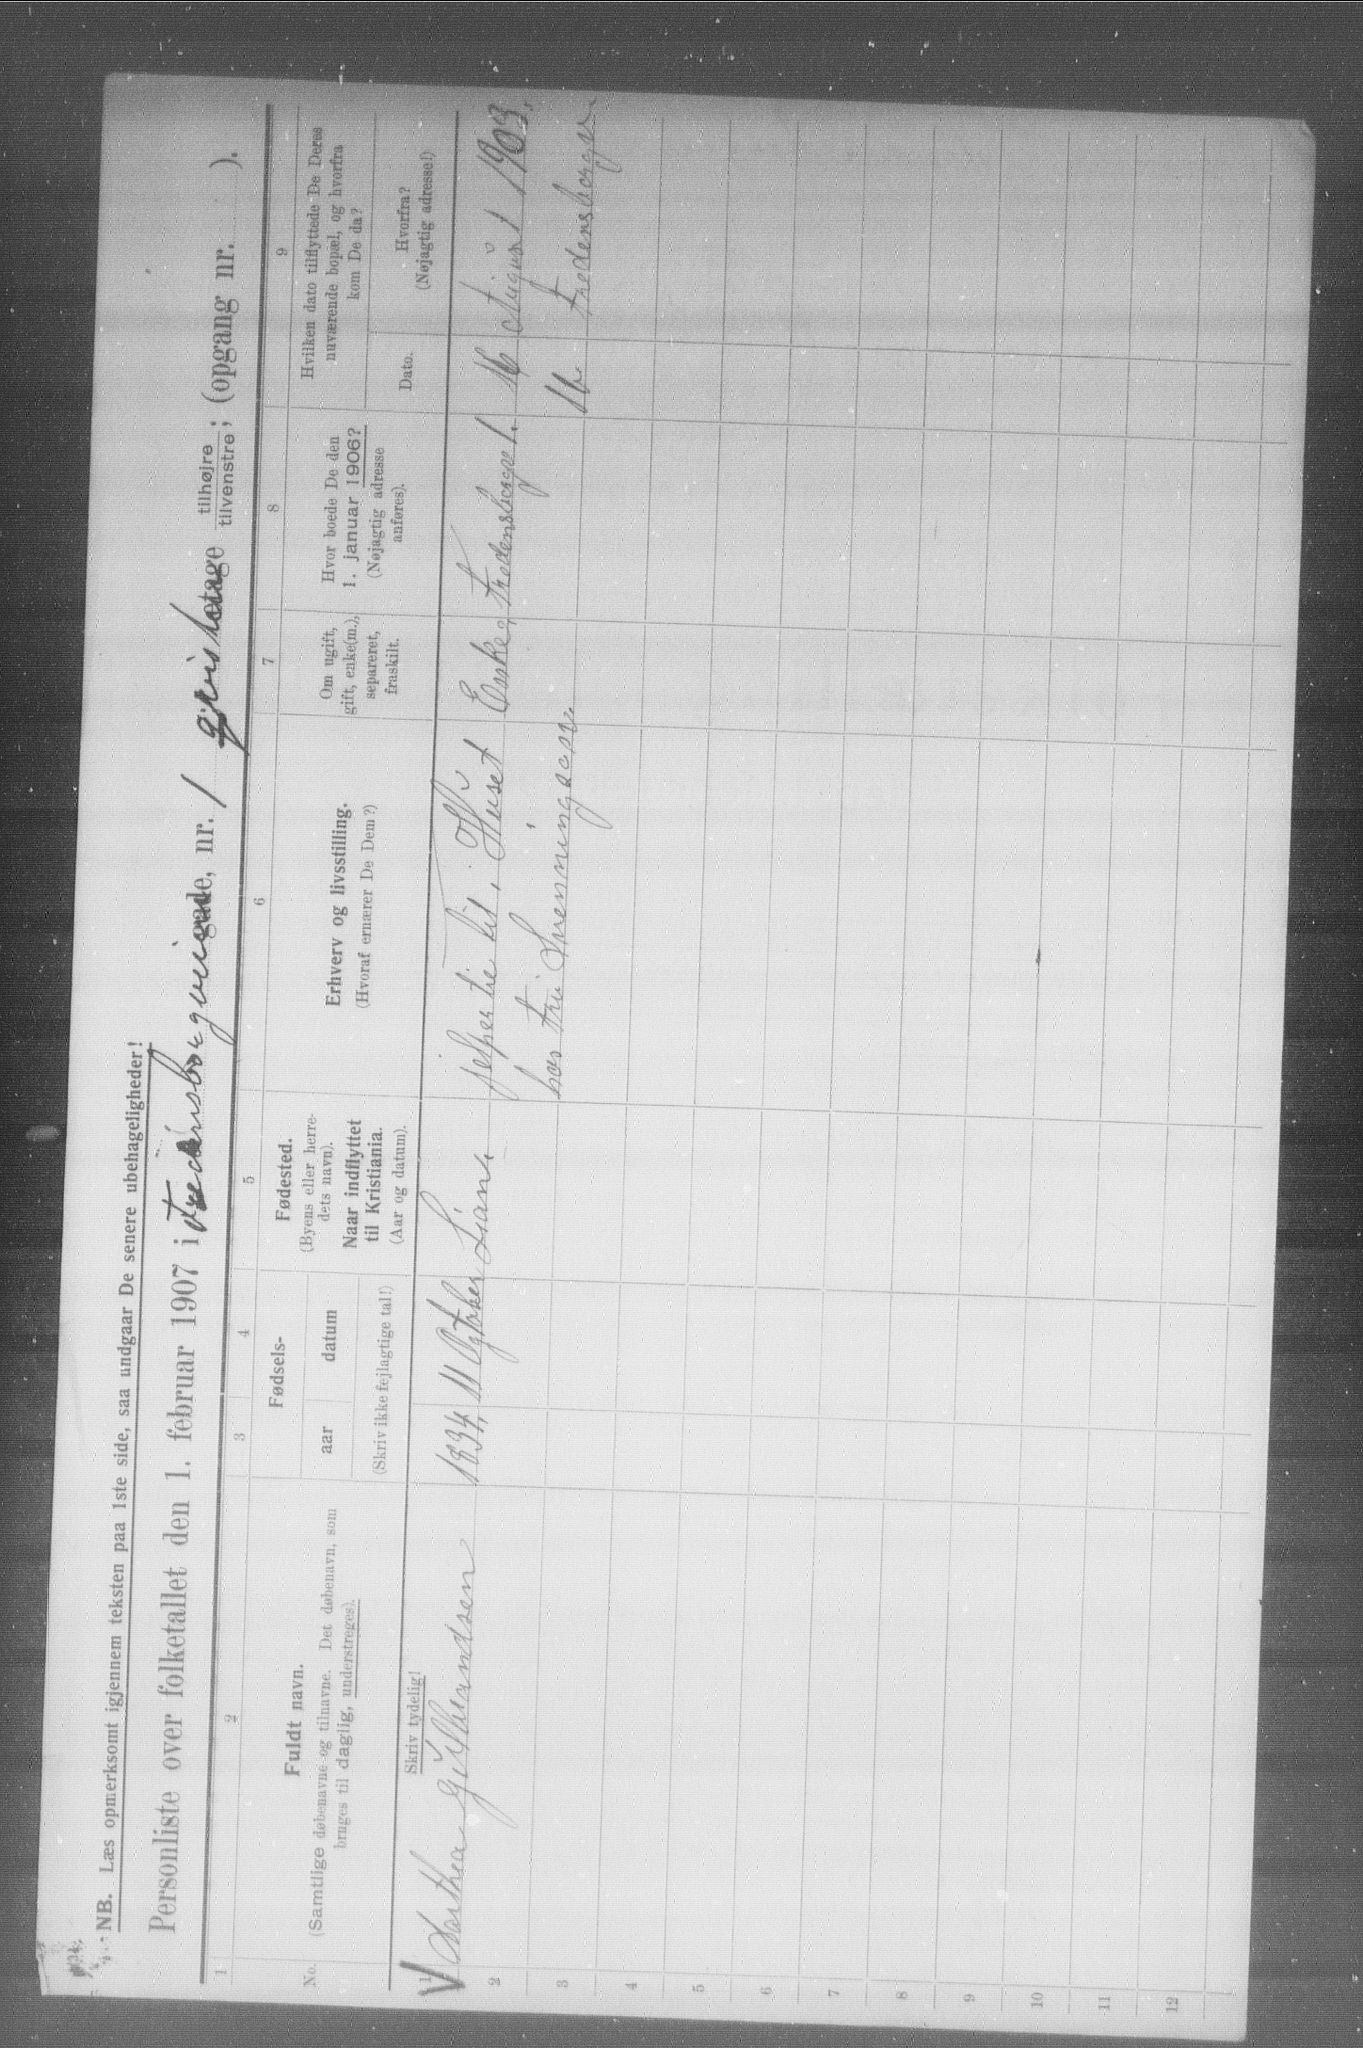 NB. Læs opmerksomt igjennem teksten paa 1ste side, saa undgaar De senere ubehageligheder!
Personliste over folketallet den 1. februar 1907 i Fredensborgveiengade, nr. 1 qvist etage tilhøjre tilvenstre; (opgang nr. ).
1 2 3 4 5 6 7 8 9
No.
Fuldt navn.
(Samtlige døbenavne og tilnavne. Det døbenavn, som
bruges til daglig, understreges).
Skriv tydelig!
Fødsels-
aar datum
(Skriv ikke fejlagtige tal!)
Fødested.
(Byens eller herre-
dets navn).
Naar indflyttet
til Kristiania.
(Aar og datum).
Erhverv og livsstilling.
(Hvoraf ernærer De Dem?)
Om ugift,
gift, enke(m.),
separeret,
fraskilt.
Hvor boede De den
1. januar 1906?
(Nøjagtig adresse
anføres).
Hvilken dato tilflyttede De Deres
nuværende bopæl, og hvorfra
kom De da?
Dato.
Hvorfra?
(Nøjagtig adresse!)
1 Dorthea Gulbrandsen 1834, 11 Ogtober Lian. jelper til i Huset Enke, Fredensborgv 1. 16 August 1903,
2 hos Fru 16. Fredensborgv
3
4
5
6
7
8
9
10
11
12